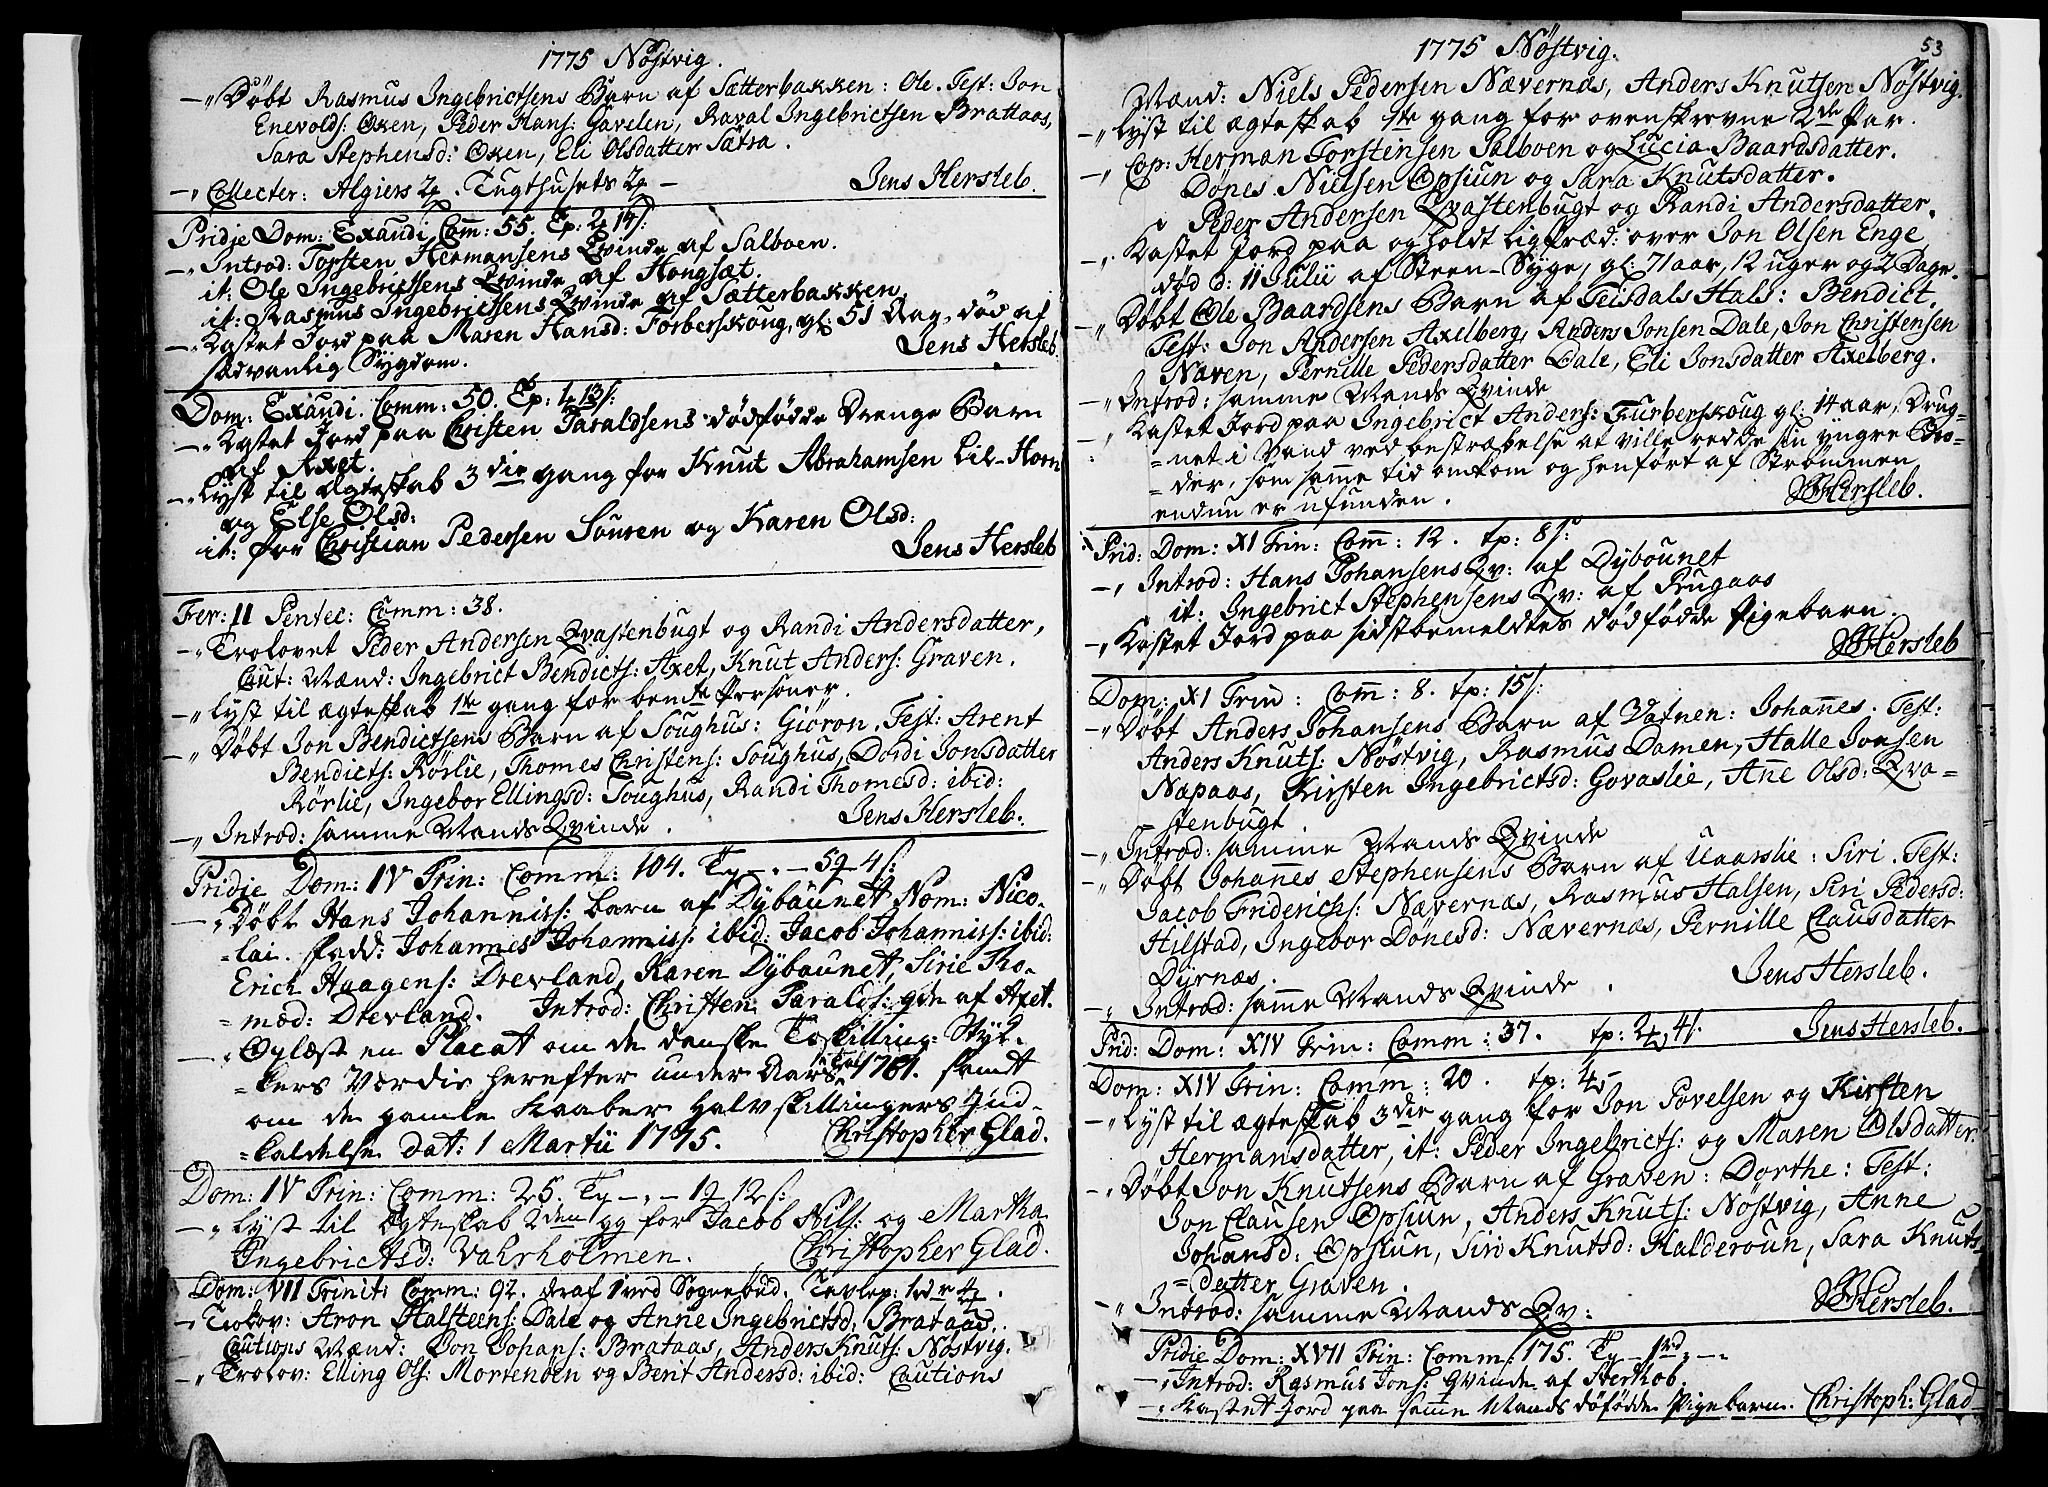 1775 Nöstvig.
—" Döbt Rasmus Ingebrictsens Barn af Sætterbakken: Ole. Test: Jon
Enevolds: Öxen, Peder Hans: Gavelen, Raval Ingebrictsen Brattaas,
Sara Stephensd: Öxen, Eli Olsdatter Sætra.
—" Collecter: Algiers 2 . Tugthusets 2 — Jens Hersleb.
Pridie Dom: Exaudi Comm: 55. Tp: 2 14/:
—" Introd: Torsten Hermansens Qvinde af Salboen.
it: Ole Ingebrictsens Qvinde af Hongsæt.
it: Rasmus Ingebrictsens Qvinde af Sætterbakken
—" Kastet Jord paa Maren Hansd: Forberskoug, gl: 51 Aar, död af
sædvanlig Sygdom. Jens Hersleb.
Dom: Exaudi. Comm: 50. Tp: 1 13/:
—" Kastet Jord paa Christen Taraldsens dödfödde Drenge Barn
af Axet.
—" Lyst til Ægteskab 3die gang for Knut Abrahamsen Lil-Horn
og Else Olsd:
it: for Christian Pedersen Souren og Karen Olsd:
Jens Hersleb
Fer: II Pentec: Comm: 38.
—" Trolovet Peder Andersen Qvastenbugt og Randi Andersdatter,
Caut: Mænd: Ingebrict Bendicts: Axet, Knut Anders: Graven.
—" Lyst til ægteskab 1te gang for bemte Personer.
—" Döbt Jon Bendictsens Barn af Soughus: Giöron. Test: Arent
Bendicts: Rörlie, Thomes Christens: Soughus, Dordi Jonsdatter
Rörlie, Ingebor Ellingsd: Soughus, Randi Thomesd: ibid:
—" Introd: samme Mands Qvinde. Jens Hersleb.
Pridie Dom: IV Trin: Comm: 104. T — " — 5 4/:
—" Döbt Hans Johanniss: barn af Dybaunet Nom: Nico-
-lai. Fadd: Johannes Johanniss: ibid: Jacob Johanniss: ibid:
Erich Haagens: Drevland, Karen Dybaunet, Sirie Tho-
-mæd: Drevland. Introd: Christen Taralds: qde af Axet.
—" Oplæst en Placat om de danske Toskilling-Styk-
-kers Værdie herefter under Aars Tal 1761. samt
om de gamle Kaaber halvskillingers Ind-
-kaldelse dat: 1 Martii 1775. Christopher Glad.
Dom: IV Trin: Comm: 25. T — " — 1 12/:
—" Lyst til Egteskab 2den gg for Jacob Nils: og Martha
Ingebrictsd: Vahrholmen. Christopher Glad.
Dom: VII Trinit: Comm: 92. deraf 1 ved Sognebud.
—" Trolov: Aron Halsteens: Dale og Anne Ingebrictsd, Brataas.
Cautions Mænd: Jon Johans: Brataas, Anders Knuts: Nöstvig.
—" Trolov: Elling Ols: Mortenöen og Berit Andersd: ibid: Cautions
1775 Nöstvig. 53
Mænd: Niels Pedersen Nævernæs, Anders Knutsen Nöstvig.
—" Lyst til ægteskab 1te gang for ovenskrevne 2de Par.
—" Cop: Herman Torstensen Salboen og Lucia Baardsdatter.
Dönes Nielsen Opsiun og Sara Knutsdatter.
Peder Andersen Qvastenbugt og Randi Andersdatter.
—" Kastet Jord paa og holdt Ligpræd: over Jon Olsen Enge
död d: 11 Julii af Steen-Syge, gl: 71 aar, 12 uger og 2 Dage.
—" Döbt Ole Baardsens Barn af Teisdals Hals: Bendict.
Test: Jon Andersen Axelberg, Anders Jonsen Dale, Jon Christensen
Næven, Pernille Pedersdatter Dale, Eli Jonsdatter Axelberg.
—" Introd: samme Mands Qvinde
—" Kastet Jord paa Ingebrict Anders: Furberskoug gl: 14 aar, Drug-
-net i Vand ved bestræbelse at ville redde sin yngre Bro-
-der, som samme tid omkom og henfört af Strömmen
endnu er ufunden. JHersleb.
Prid: Dom: XI Trin: Comm: 12. tp: 8/:
—" Introd: Hans Johansens Qv: af Dybounet
it: Ingebrict Stephensens Qv: af Rugaas
—" Kastet Jord paa sidstbemeldtes dödfödde Pigebarn.
JHersleb
Dom: XI Trin: Comm: 8. tp: 15/:
—" Döbt Anders Johansens Barn af Vatnen: Johannes. Test:
Anders Knuts: Nöstvig, Rasmus Damen, Halle Jonsen
Napaas, Kirsten Ingebrictsd: Govaslie, Anne Olsd: Qva-
-stenbugt.
—" Introd: samme Mands Qvinde
—" Döbt Johannes Stephensens Barn af Uaarslie: Siri. Test:
Jacob Friderichs: Nævernæs, Rasmus Halsen, Siri Pedersd:
Hilstad, Ingebor Dönesd: Nævernæs, Pernille Clausdatter
Dyrnæs. Jens Hersleb.
—" Introd: samme Mands Qvinde.
Prid: Dom: XIV Trin: Comm: 37. tp: 2 4/: Jens Hersleb.
Dom: XIV Trin: Comm: 20. tp:
—" Lyst til ægteskab 3die gang for Jon Povelsen og Kirsten
Hermansdatter, it: Peder Ingebricts: og Maren Olsdatter.
—" Döbt Jon Knutsens Barn af Graven: Dorthe: Test:
Jon Clausen Opsiun, Anders Knuts: Nöstvig, Anne
Johansd: Opsiun, Siri Knutsd: Halderoun, Sara Knuts-
-datter Graven.
—" Introd: samme Mands Qv: JHersleb.
Pridie Dom: XVII Trin: Comm: 175. T — 1rd — " —
—" Introd: Rasmus Jons: Qvinde af Sterkob.
—" Kastet Jord paa samme Mands döfödde Pigebarn. Christoph: Glad